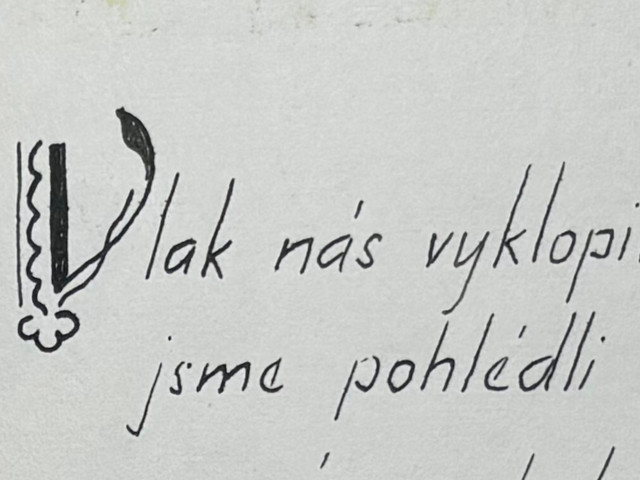 Vlak nás vyklopi
jsme pohlédli